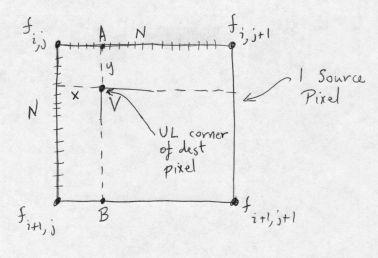 f i,j
A
N
f i,j+1
y
x
V
N
1 Source
Pixel
UL corner
of dest
pixel
f i+1,j
B
f i+1,j+1